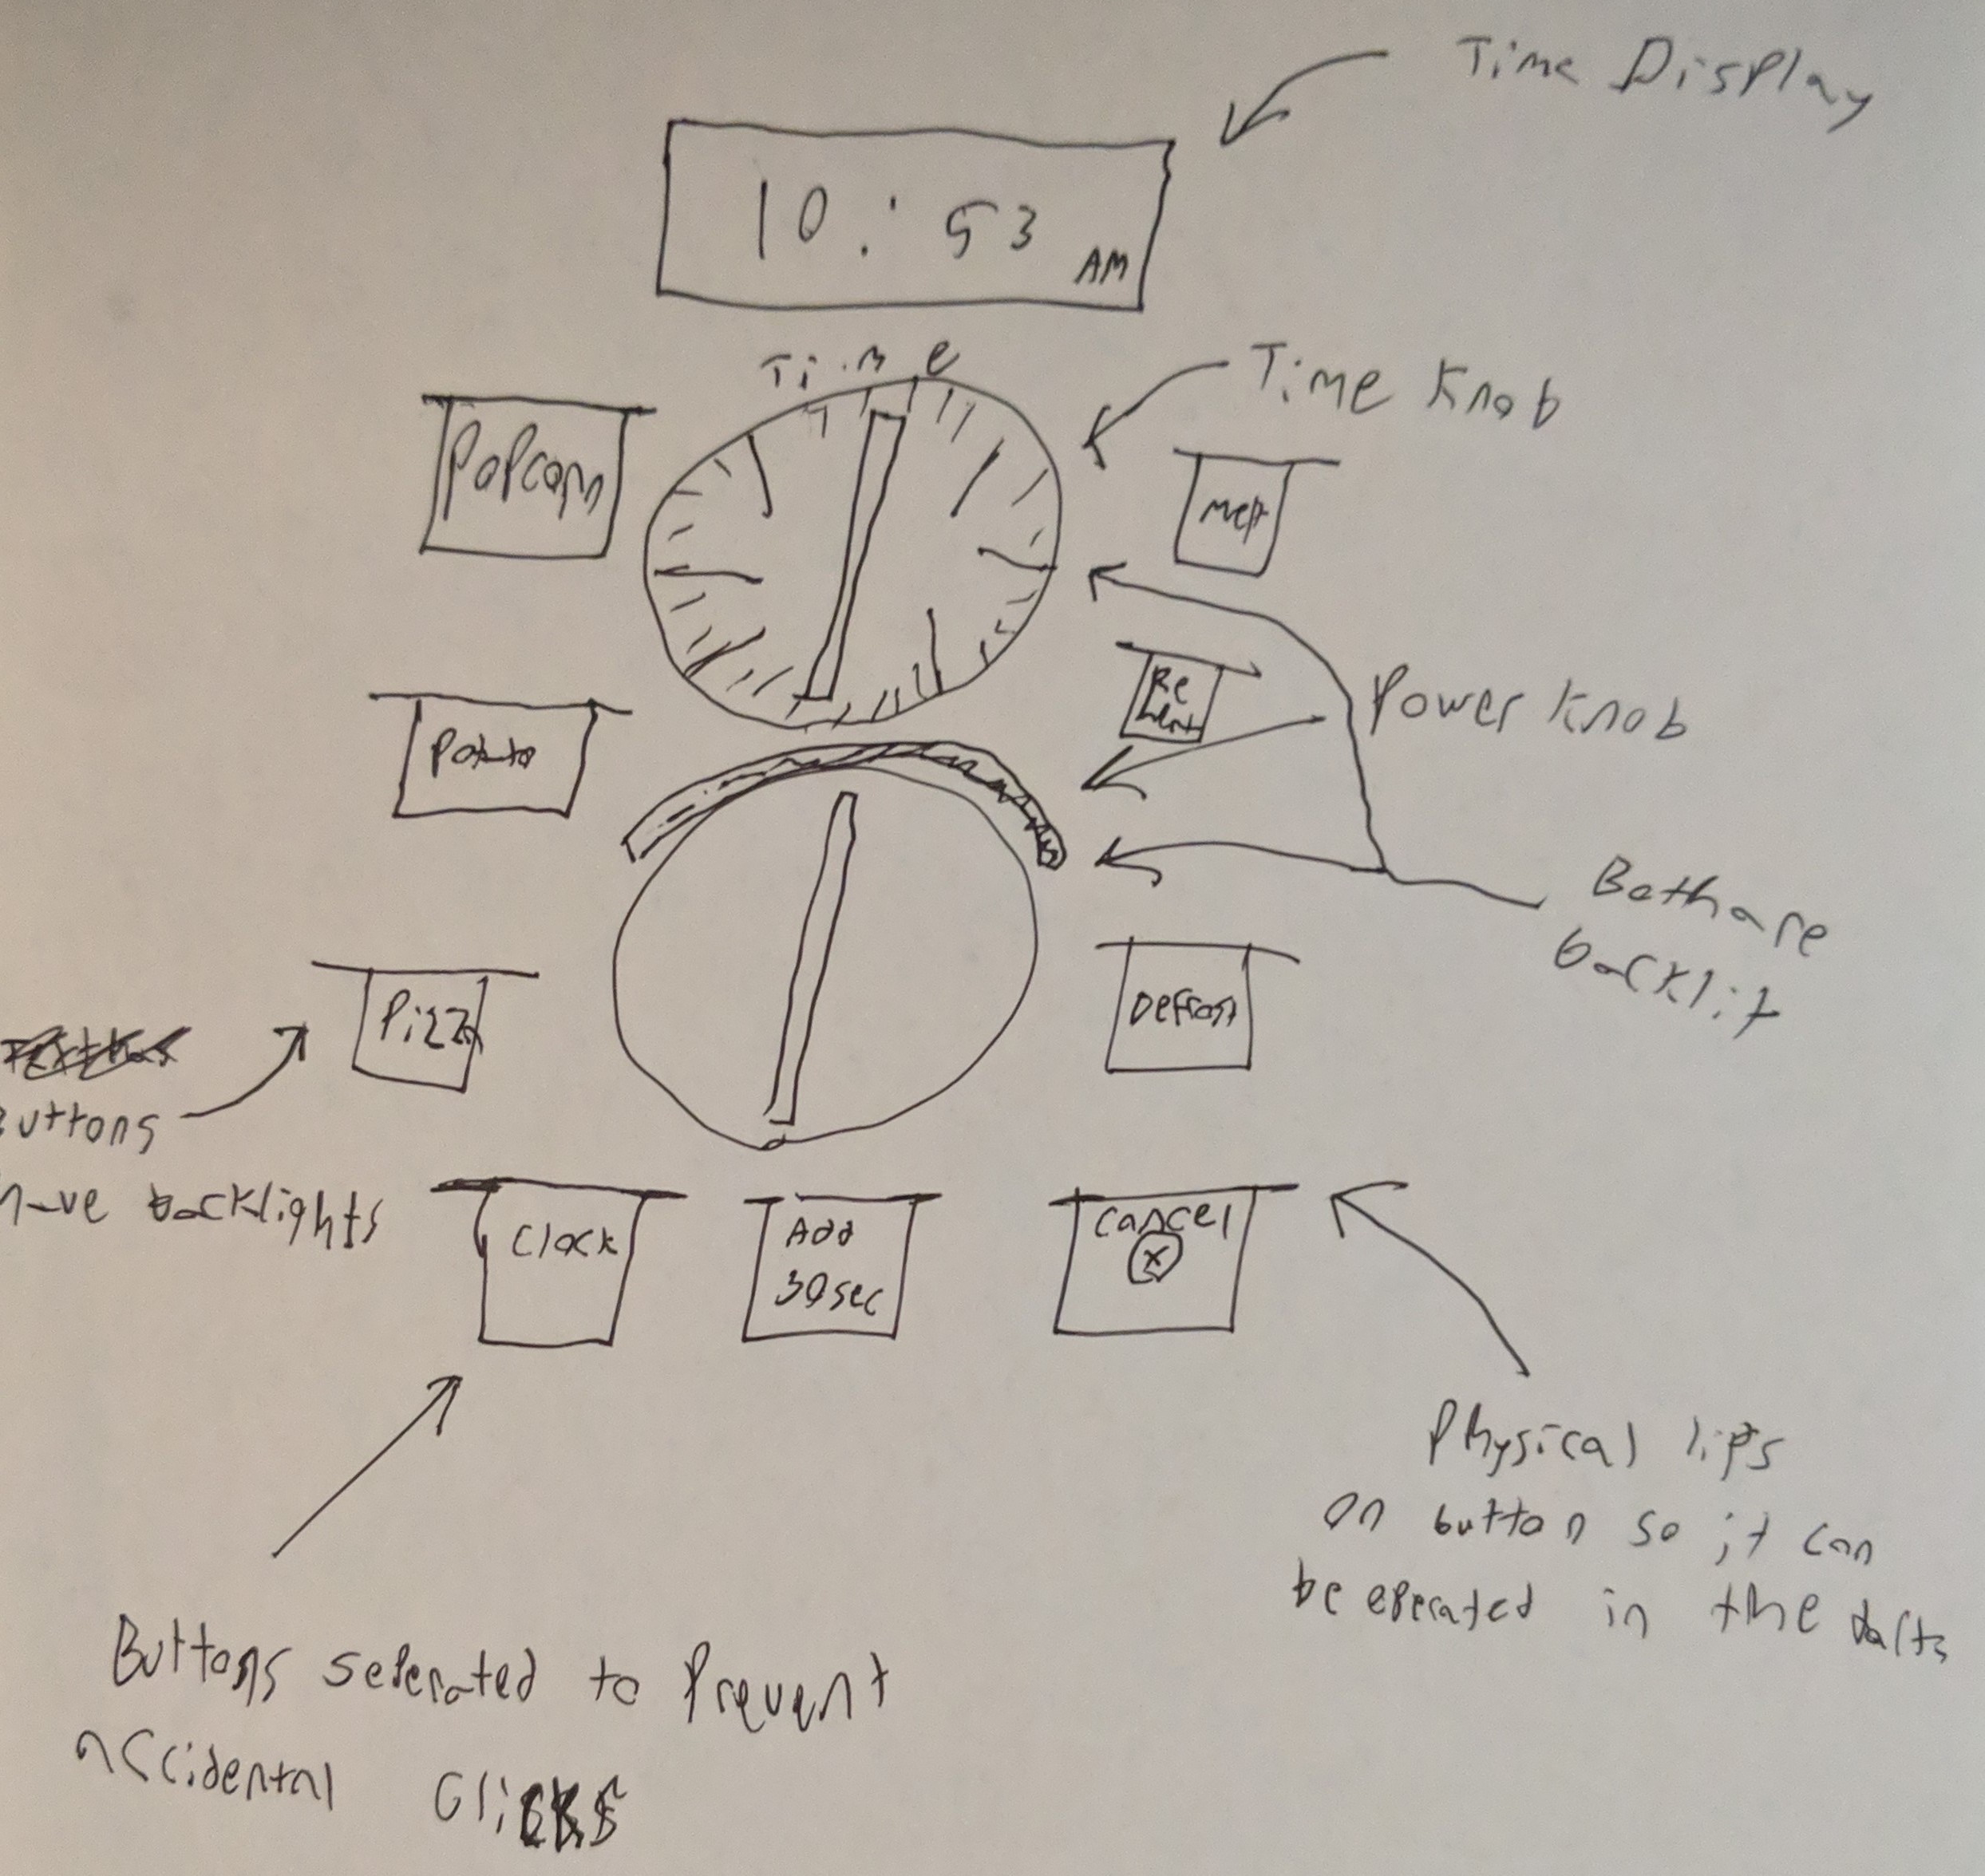 Time Display
10:53 AM
Time
Time Knob
Popcorn
Melt
Re
heat
Power Knob
Potato
Both are
backlit
Pizza
Defrost
Buttons
have backlights
Clock
Add
30sec
Cancel
X
Physical lips
on button so it can
be operated in the
Buttons seperated to Prevent
accidental Clicks